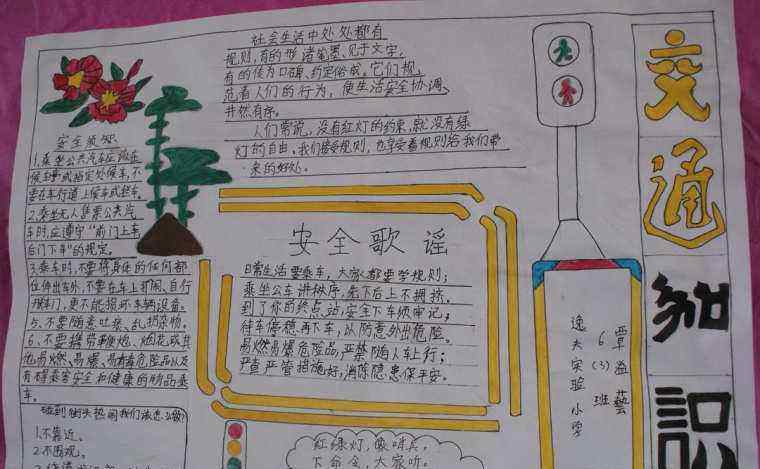 交通知识
社会生活中处处都有
规则,有的形诸笔墨、见于文字,
有的传为口碑、约定俗成,它们规
范着人们的行为,使生活安全协调、
井然有序。
人们常说,没有红灯的约束,就没有绿
灯的自由,我们接受规则,也享受着规则给我们带
来的好处。
安全须知
1.乘坐公共汽车应该在
候车亭或指定处候车,不
要在车行道上候车或拦车。
2.乘坐无人售票公共汽
车时,应遵守"前门上车
后门下车"的规定。
3.乘车时,不要将身体的任何部
位伸出车外,不要在车上打闹、自行
开车门,更不能损坏车辆设备。
5、不要随意吐痰、乱扔杂物。
6、不要携带鞭炮、烟花或其
他易燃、易爆、易有毒危险品以及
有碍乘客安全和健康的物品乘
车。
碰到街头热闹我们该怎么做?
1.不靠近。
2.不围观。
安全歌谣
日常生活要乘车,大家都要学规则;
乘坐公车讲秩序,先下后上不拥挤。
到了你的终点站,安全下车须牢记;
待车停稳再下车,以防意外出危险。
易燃易爆危险品,严禁随人车上行;
严查严管措施好,消除隐患保平安。
红绿灯,像哨兵,
下命令,大家听。
逸夫实验小学
6(3)班
覃益艺